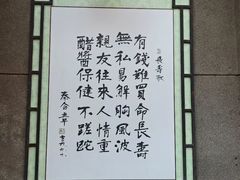 長壽歌
有錢難買命長壽
無私易解胸風波
親友往來人情重
醋醬保健不蹉跎